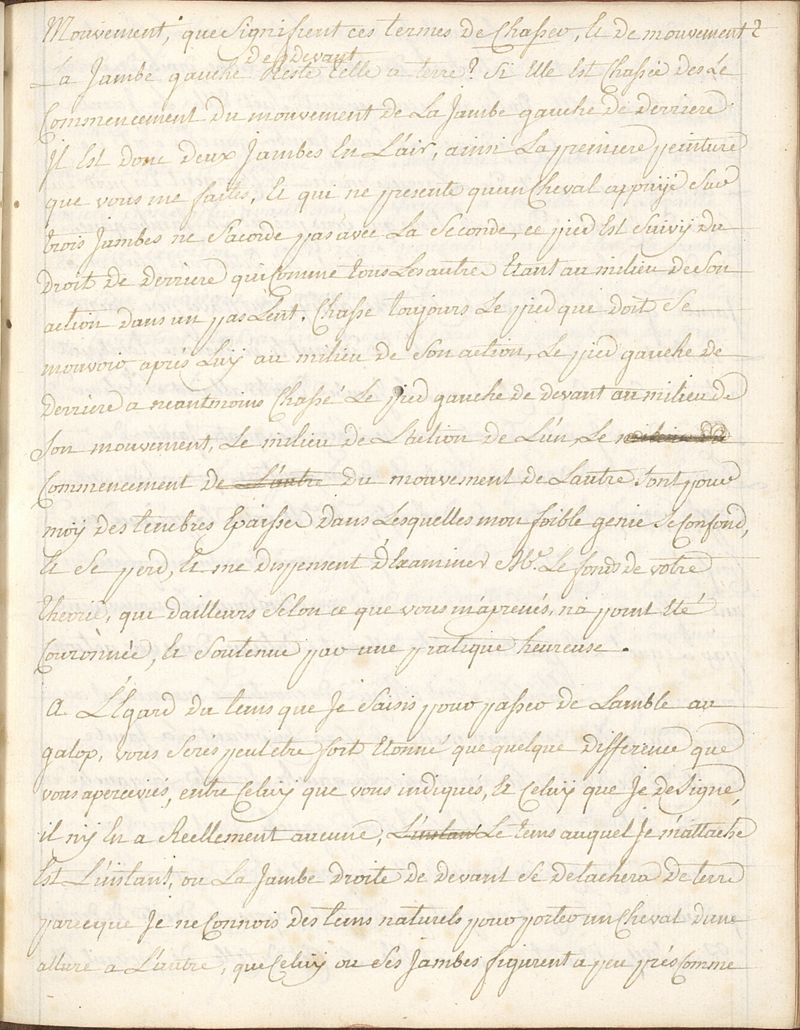 Mouvement, que signifient ces termes de Chasser, et de mouvement?
de devant
La Jambe gauche Reste telle a terre? Si Elle Est Chassée des Le
Commencement du mouvement de La Jambe gauche de derriere
Il Est donc deux Jambes En L'air, ainsi La premiere peinture
que vous me faites, Et qui ne presente qu'un Cheval appuyé Sur
trois Jambes ne S'acorde pas avec La Seconde, ce pied Est Suivy du
droit de derriere qui Comme tous Les autres Etant au milieu de Son
action dans un pas Lent. Chasse toujours Le pied qui doit Se
mouvoir aprés Luy au milieu de Son action, Le pied gauche de
derriere a neantmoins Chassé Le pied gauche de devant au milieu de
Son mouvement, Le milieu de L'action de L'un, Le
Commencement de L'autre du mouvement de Lautre Sont pour
moy des tenebres Epaisses dans Lesquelles mon foible genie Se Confond,
Et Se perd, Et me dispensent d'Examiner Mr. Le fonds de votre
theorie, qui dailleurs Selon ce que vous m'aprenés, n'a point Eté
Couronnée, Et Soutenue par une pratique heureuse.
A L'Egard du tems que Je Saisis pour passer de Lamble au
galop, vous Serés peut etre fort Etonné que quelque difference que
vous aperceviés, entre Celuy que vous indiqués, Et Celuy que Je designe,
il n'y En a Reellement aucune, L'instant Le tems auquel Je m'attache
Est L'instant, ou La Jambe droite de devant Se detachera de terre
parceque Je ne Connois des tems naturels pour porter un Cheval d'une
allure a L'autre, que Celuy ou Ses Jambes figurent a peu prés Comme